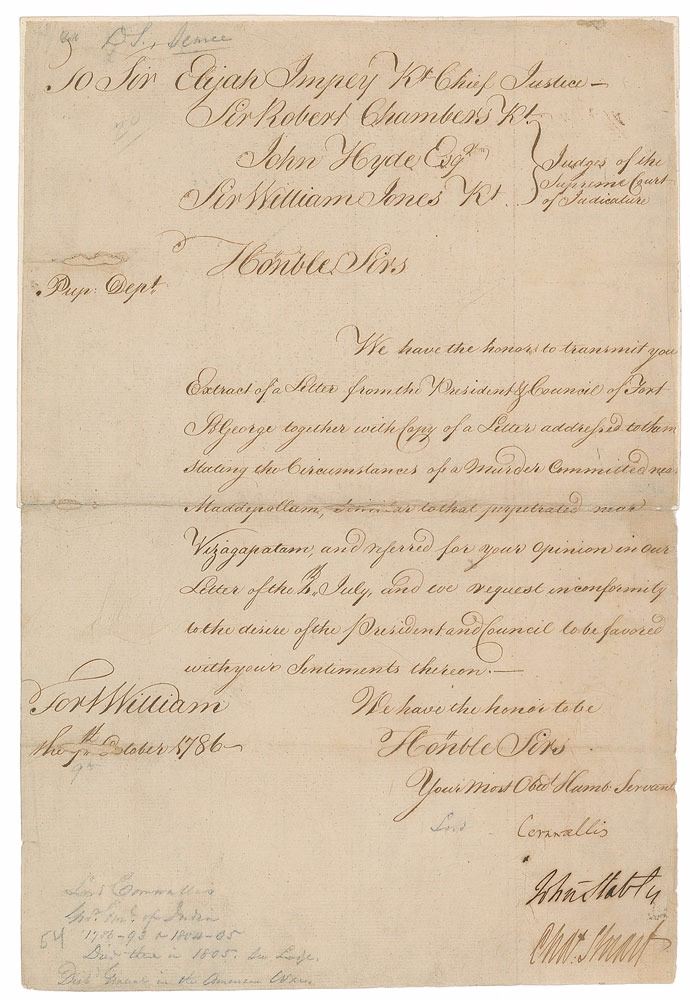 To Sir Elijah Impey Kt. Chief Justice —
Sir Robert Chambers Kt.
John Hyde Esqr.
Sir William Jones Kt.
Judges of the
Supreme Court
of Judicature
Honble Sirs
Pub: Dept.
We have the honor to transmit you
Extract of a Letter from the President & Council of Fort
St. George together with Copy of a Letter addressed to them
stating the Circumstances of a Murder Committed near
Maddepollam, similar to that perpetrated near
Vizagapatam, and referred for your Opinion in our
Letter of the July, and we request in conformity
to the desire of the President and Council to be favored
with your Sentiments thereon. —
Fort William
the October 1786 —
We have the honor to be
Honble Sirs
Your Most Obedt. Humb. Servants
Lord Cornwallis
John Stables
Chas. Stuart
Lord Cornwallis
of India
1786-93 & 1804-05
Died there in 1805. See Lodge.
in the American War.
64